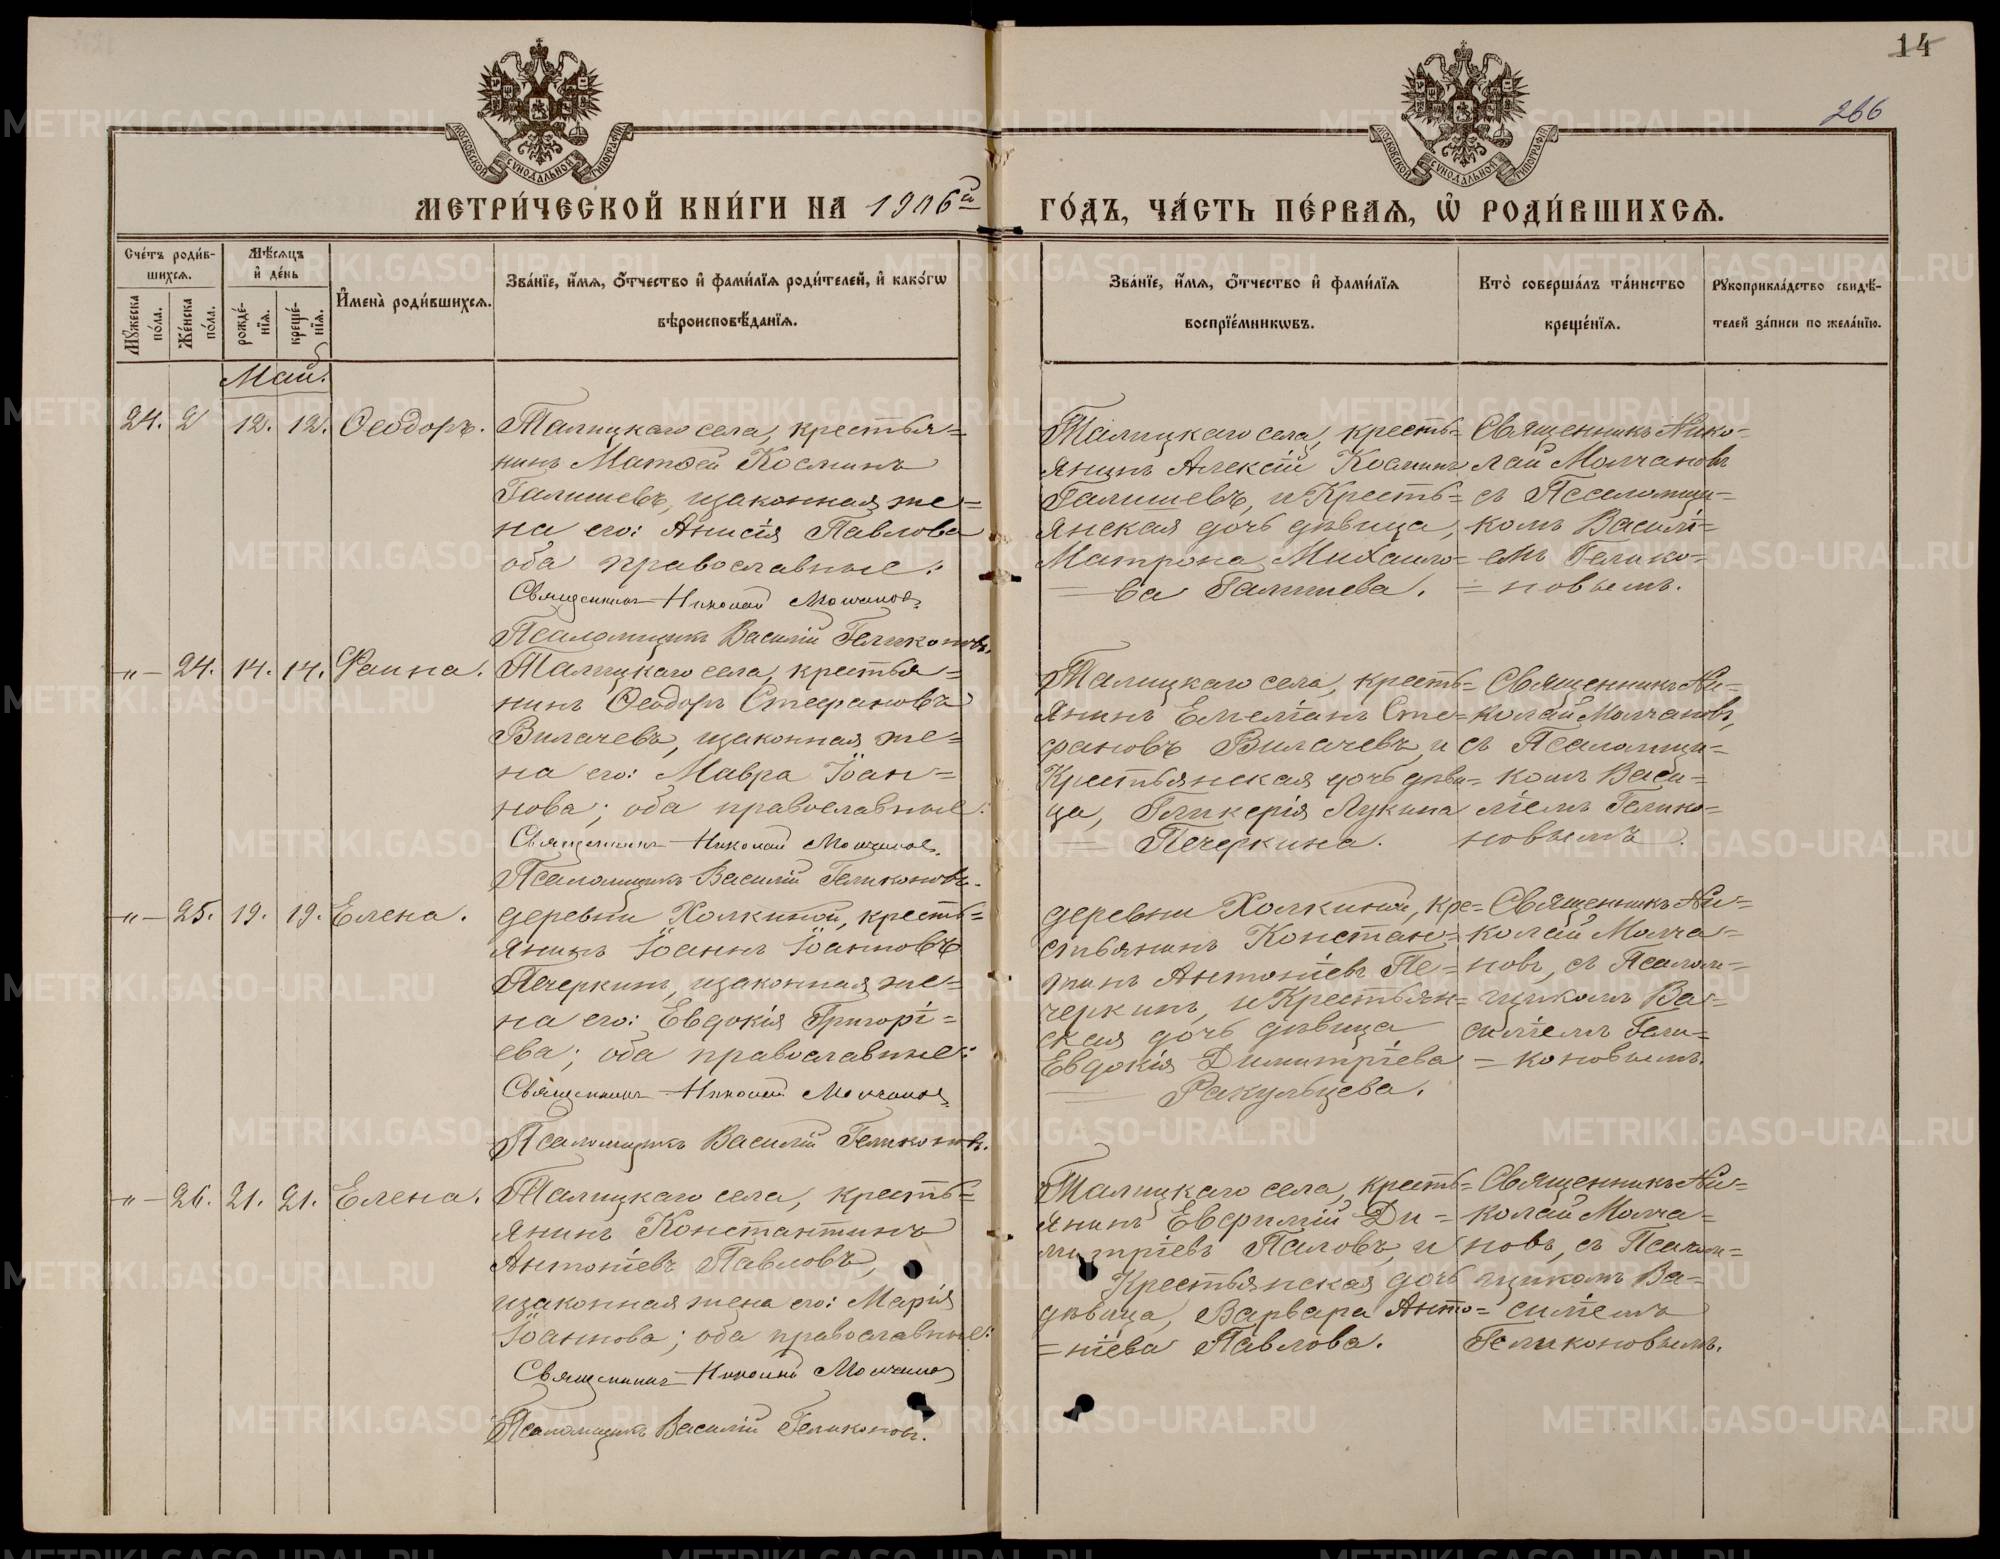 14
266
МОСКОВСКОЙ СѴНОДАЛЬНОЙ ТИПОГРАФІИ
МОСКОВСКОЙ СѴНОДАЛЬНОЙ ТИПОГРАФІИ
МЕТРИ́ЧЕСКОЙ КНИ́ГИ НА 1906й
ГО́ДЪ, ЧА́СТЬ ПЕ́РВАѦ, Ѽ РОДИ́ВШИХСѦ.
Сче́тъ роди́в-
шихсѧ.
Мꙋжеска по́ла.
Же́нска по́ла.
Мѣ́сѧцъ
и҆ де́нь
рожде́-
нїѧ.
креще́-
нїѧ.
И҆мена̀ роди́вшихсѧ.
Зва́нїе, и҆́мѧ, ѻ҆́тчество и҆ фами́лїѧ роди́телей, и҆ како́гѡ
вѣроисповѣ́данїѧ.
Зва́нїе, и҆́мѧ, ѻ҆́тчество и҆ фами́лїѧ
воспрїе́мникѡвъ.
Кто̀ соверша́лъ та́инство
креще́нїѧ.
Рꙋкоприкла́дство свидѣ́-
телей за́писи по жела́нїю.
Май.
24. 2 12. 12. Ѳеодоръ.
Талицкаго села, крестья=
нинъ Матѳей Косминъ
Галишевъ, и законная же=
на его: Анисія Павлова
оба православные.
Священникъ Николай Молчановъ
Псаломщикъ Василій Геликоновъ.
Талицкаго села, кресть=
янинъ Алексій Косминъ
Галишевъ, и Кресть=
янская дочь дѣвица,
Матрона Михаило=
=ва Галишева.
Священникъ Нико=
лай Молчановъ
съ Псаломщи=
комъ Василі=
емъ Гелико=
=новымъ.
-„- 24. 14. 14. Фаина.
Талицкаго села, крестья=
нинъ Ѳеодоръ Стефановъ
Вилачевъ, и законная же=
на его: Мавра Іоан=
нова; оба православные:
Священникъ Николай Молчановъ
Псаломщикъ Василій Геликоновъ.
Талицкаго села, кресть=
янинъ Емеліанъ Сте=
фановъ Вилачевъ, и
Крестьянская дочь дѣви=
ца, Гликерія Лукина
Печеркина.
Священникъ Ни=
колай Молчановъ,
съ Псаломщи=
комъ Васи=
ліемъ Гелико=
новымъ.
-„- 25. 19. 19. Елена.
деревни Холкиной, кресть=
янинъ Іоаннъ Іоанновъ
Печеркинъ, и законная же=
на его: Евдокія Григорі=
ева; оба православные:
Священникъ Николай Молчановъ
Псаломщикъ Василій Геликоновъ.
деревни Холкиной, кре=
стьянинъ Констан=
тинъ Антоніевъ Пе=
черкинъ, и Крестьян=
ская дочь дѣвица
Евдокія Димитріева
Ракульцева.
Священникъ Ни=
колай Молча=
новъ, съ Псалом=
щикомъ Ва=
силіемъ Гели=
=коновымъ.
-„- 26. 21. 21. Елена.
Талицкаго села, кресть=
янинъ Константинъ
Антоніевъ Павловъ,
и законная жена его: Марія
Іоаннова; оба православные:
Священникъ Николай Молчановъ
Псаломщикъ Василій Геликоновъ.
Талицкаго села, кресть=
янинъ Евфимій Ди=
митріевъ Паловъ, и
Крестьянская дочь
дѣвица, Варвара Анто=
=ніева Павлова.
Священникъ Ни=
колай Молча=
новъ, съ Псалом=
щикомъ Ва=
силіемъ
Геликоновымъ.
METRIKI.GASO-URAL.RU